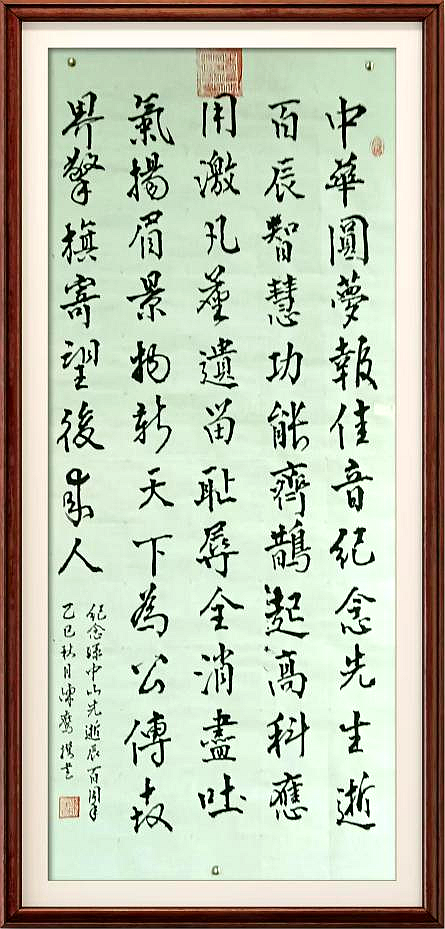 中華圓夢報佳音紀念先生逝
百辰智慧功能齊鵲起高科應
用激孔遺留恥辱全消盡吐
氣揚眉景物新天下為公傳
界擎旗寄望後來人
紀念孫中山先逝辰百周年
乙巳秋月陳撰書